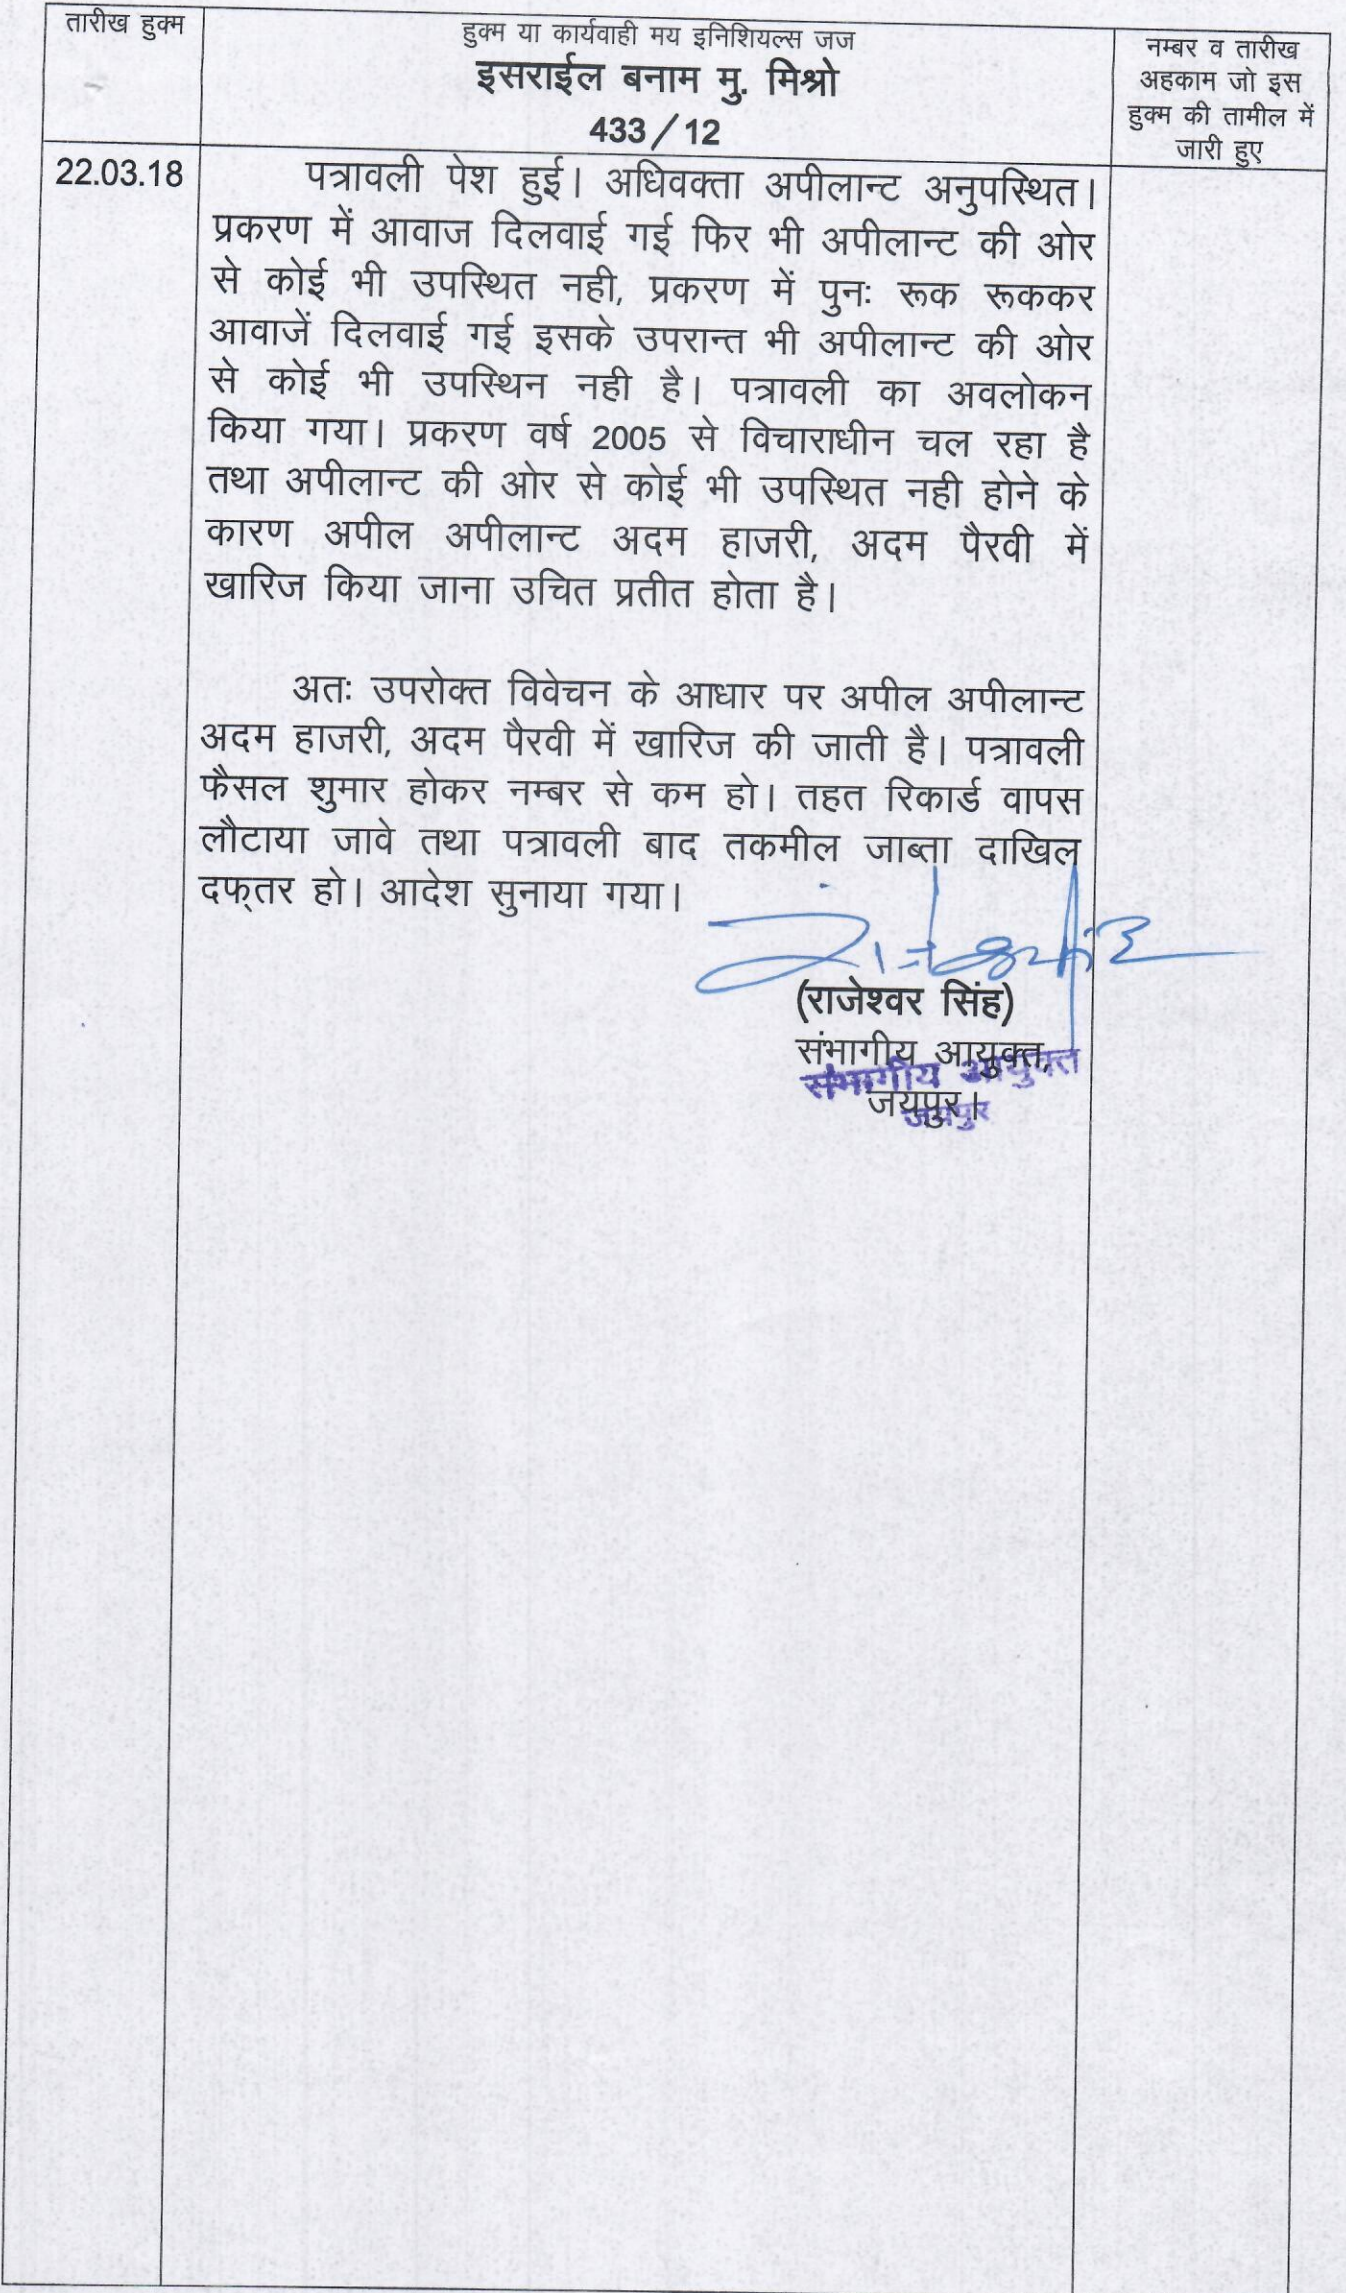 तारीख हुक्म
हुक्म या कार्यवाही मय इनिशियल्स जज
इसराईल बनाम मु. मिश्रो
433/12
नम्बर व तारीख
अहकाम जो इस
हुक्म की तामील में
जारी हुए
22.03.18
पत्रावली पेश हुई। अधिवक्ता अपीलान्ट अनुपस्थित।
प्रकरण में आवाज दिलवाई गई फिर भी अपीलान्ट की ओर
से कोई भी उपस्थित नही, प्रकरण में पुनः रूक रूककर
आवाजें दिलवाई गई इसके उपरान्त भी अपीलान्ट की ओर
से कोई भी उपस्थिन नही है। पत्रावली का अवलोकन
किया गया। प्रकरण वर्ष 2005 से विचाराधीन चल रहा है
तथा अपीलान्ट की ओर से कोई भी उपस्थित नही होने के
कारण अपील अपीलान्ट अदम हाजरी, अदम पैरवी में
खारिज किया जाना उचित प्रतीत होता है।
अतः उपरोक्त विवेचन के आधार पर अपील अपीलान्ट
अदम हाजरी, अदम पैरवी में खारिज की जाती है। पत्रावली
फैसल शुमार होकर नम्बर से कम हो। तहत रिकार्ड वापस
लौटाया जावे तथा पत्रावली बाद तकमील जाब्ता दाखिल
दफ्तर हो। आदेश सुनाया गया।
(राजेश्वर सिंह)
संभागीय आयुक्त,
संभागीय आयुक्त
जयपुर।
जयपुर